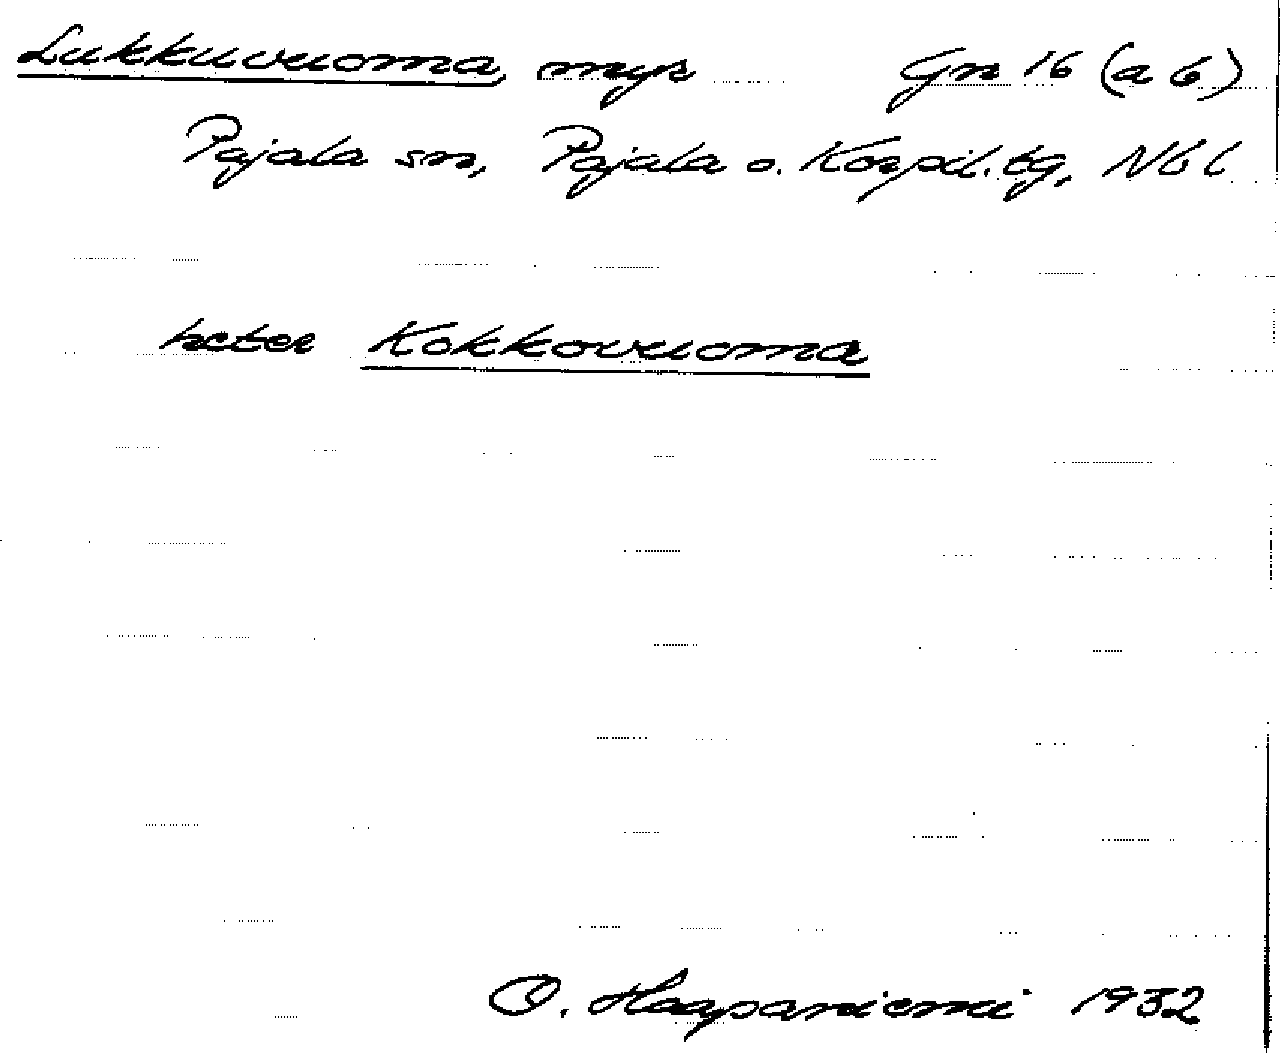 Lukkuvuoma, myr Gn 16 (a b)
Pajala sn, Pajala o. Korpil. tg, Nbl
heter Kokkovuoma
O. Haapaniemi 1932